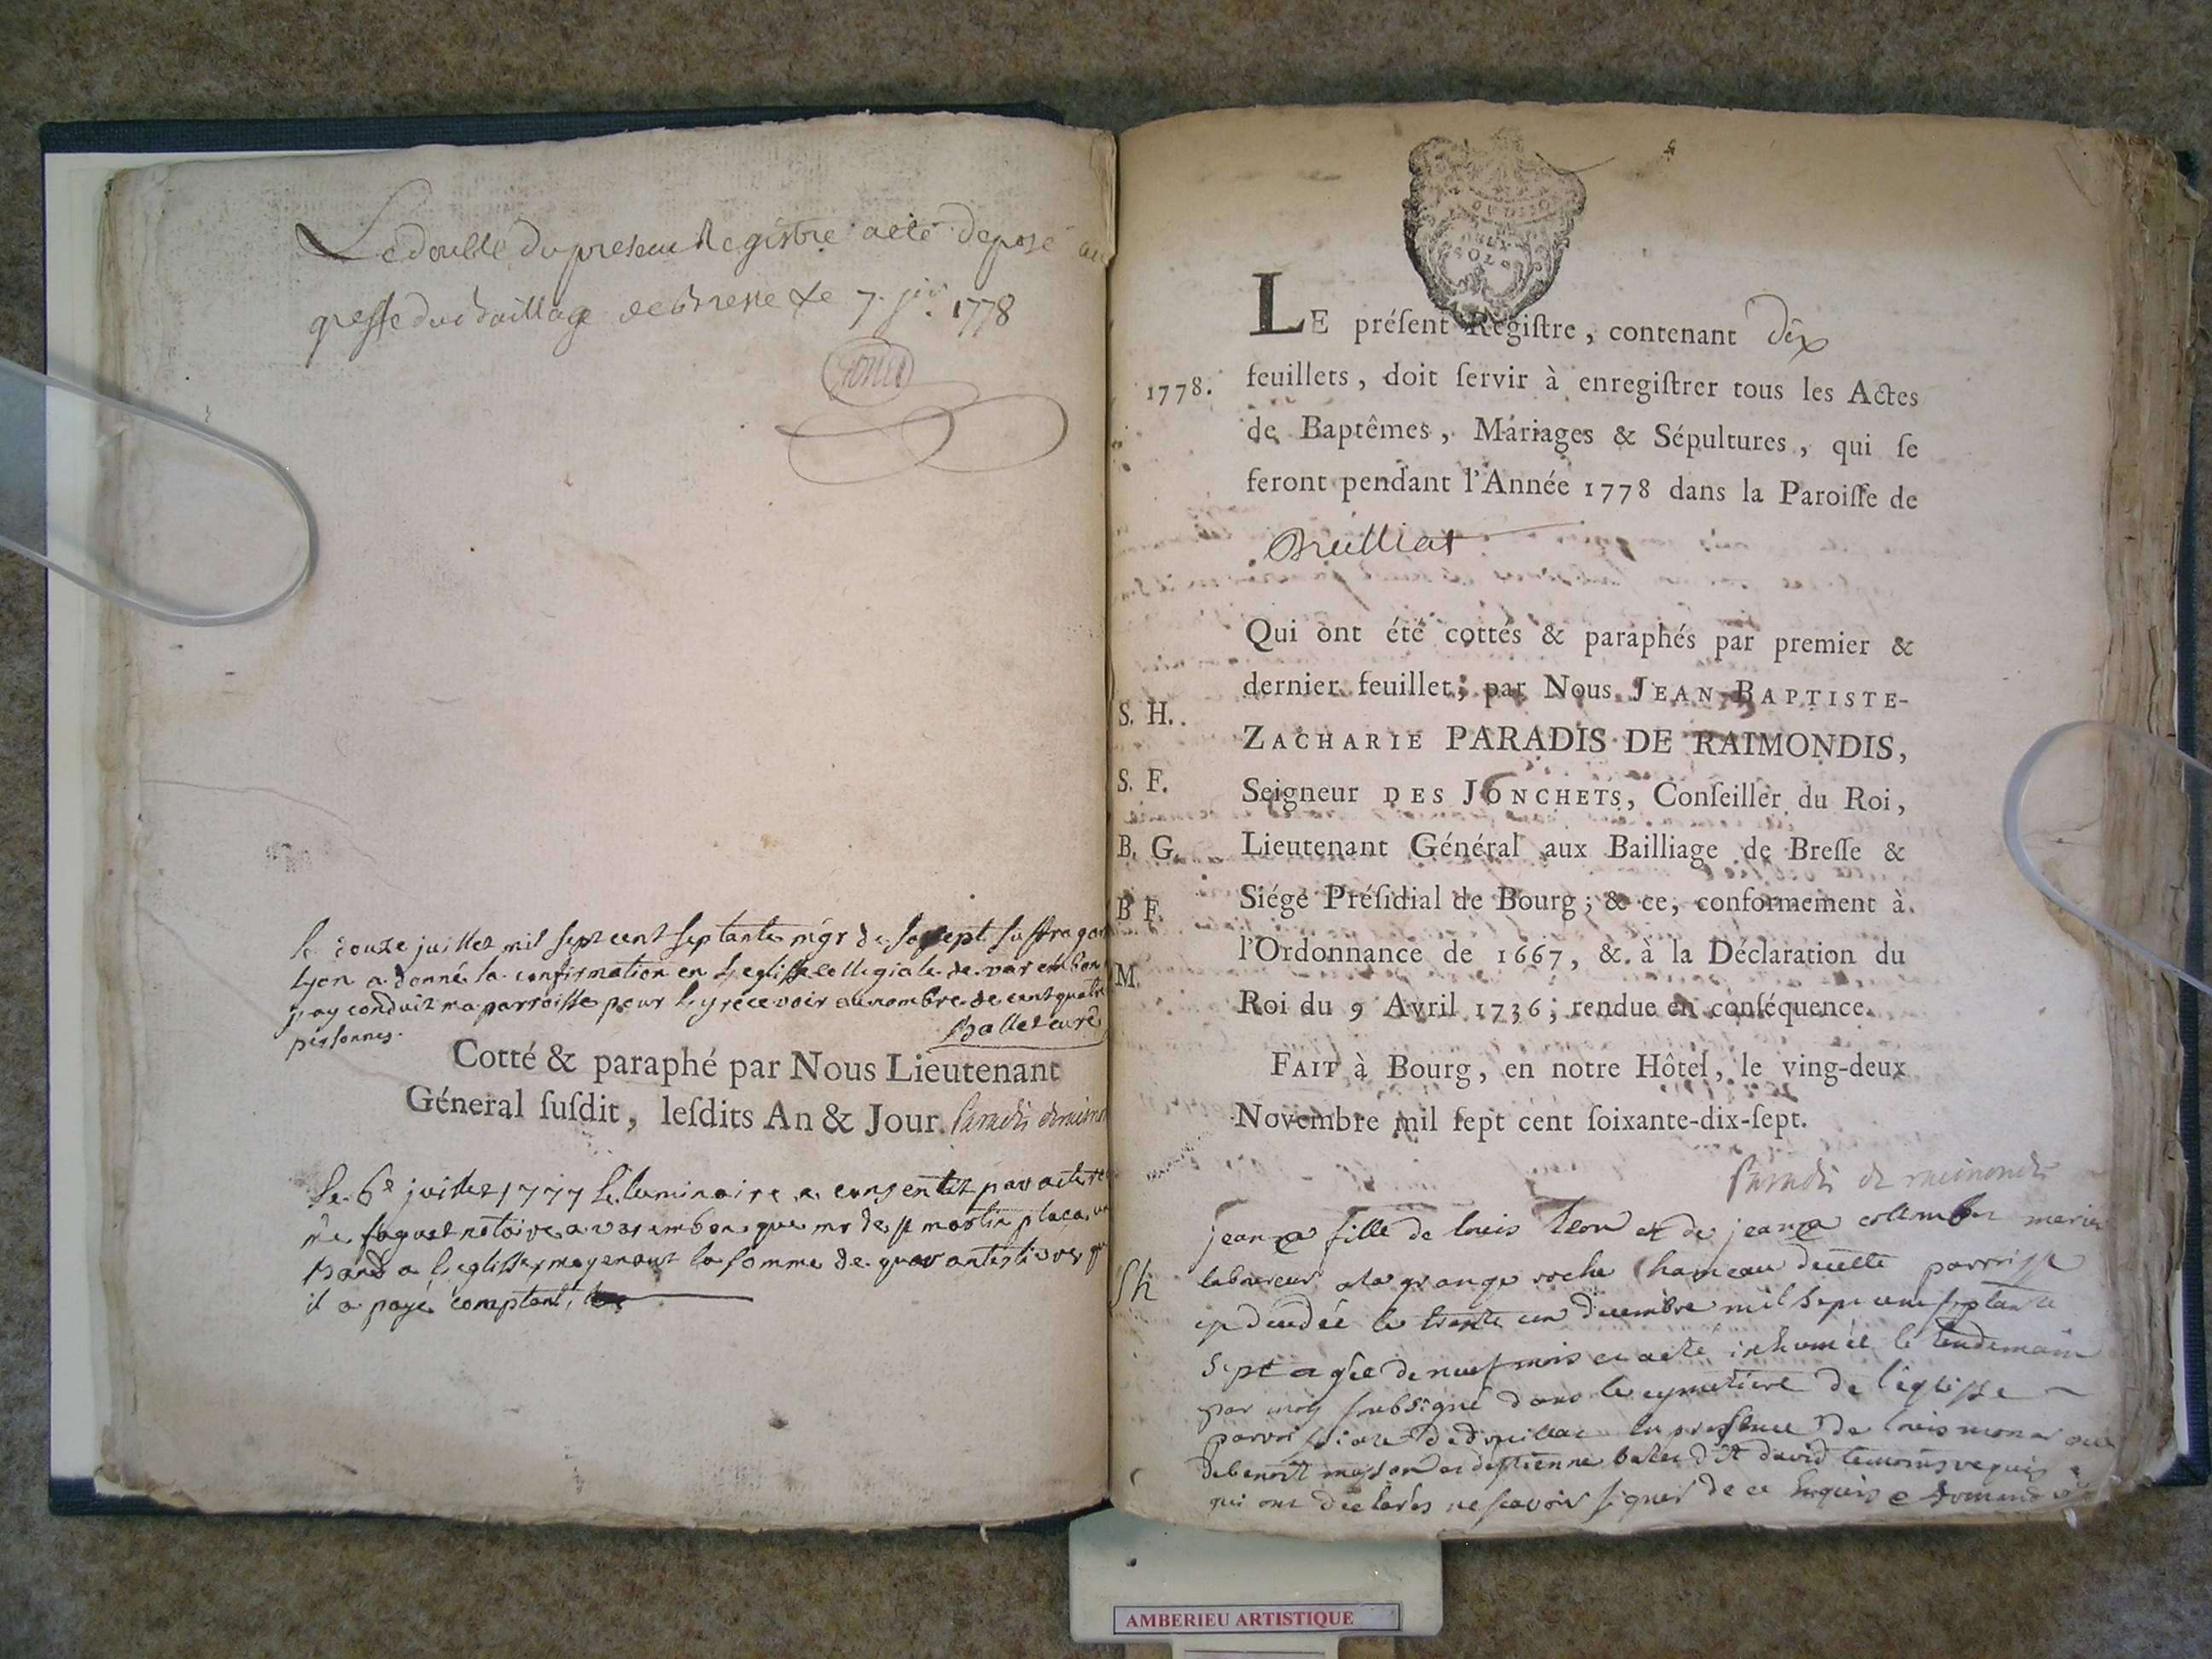 Le double du present Registre a eté deposé au
greffe du Bailliage de Bresse Le 7. jer. 1778
le douze juillet mil sept cent septante mgr de suffragan
Lyon a donné la confirmation en L'eglisse collegiale de varembon
j'ay conduit ma parroisse pour l'y recevoir au nombre de cent quatre
personnes.
Ballet curé
Cotté & paraphé par Nous Lieutenant
Géneral ſuſdit, leſdits An & Jour. Paradis de raimon
Le 6e juillet 1777 le luminaire a consentit par acte
me faguet notaire a varembon que mr de st martin placa un
banc a L'eglisse moyenant la somme de quarantes livres
il a payé comptant,
LE préſent Regiſtre, contenant dix
1778. feuillets, doit ſervir à enregiſtrer tous les Actes
de Baptêmes, Mariages & Sépultures, qui ſe
feront pendant l'Année 1778 dans la Paroiſſe de
Druilliat
Qui ont été cottés & paraphés par premier &
dernier feuillet; par Nous JEAN-BAPTISTE-
S. H.
ZACHARIE PARADIS DE RAIMONDIS,
S. F.
Seigneur DES JONCHETS, Conſeiller du Roi,
B. G.
Lieutenant Général aux Bailliage de Breſſe &
Siége Préſidial de Bourg; & ce, conformement à
B F.
l'Ordonnance de 1667, &. à la Déclaration du
M.
Roi du 9 Avril 1736; rendue en conſéquence.
FAIT à Bourg, en notre Hôtel, le ving-deux
Novembre mil ſept cent ſoixante-dix-ſept.
Paradis de raimondis
jeanne fille de louis et de jeanne mariés
Sh
laboureur a la grange roche hameau de cette parroisse
est décédée le trente un décembre mil sept cent septante
sept agée de neuf mois et a eté inhumée le lendemain
par moy soubsigné dans le cymetiere de l'eglisse
parroissiale de druillat en presence de louis
de benoit et d'estienne dit david temoins requis
qui ont declarés ne scavoir signer de ce enquis
AMBERIEU ARTISTIQUE